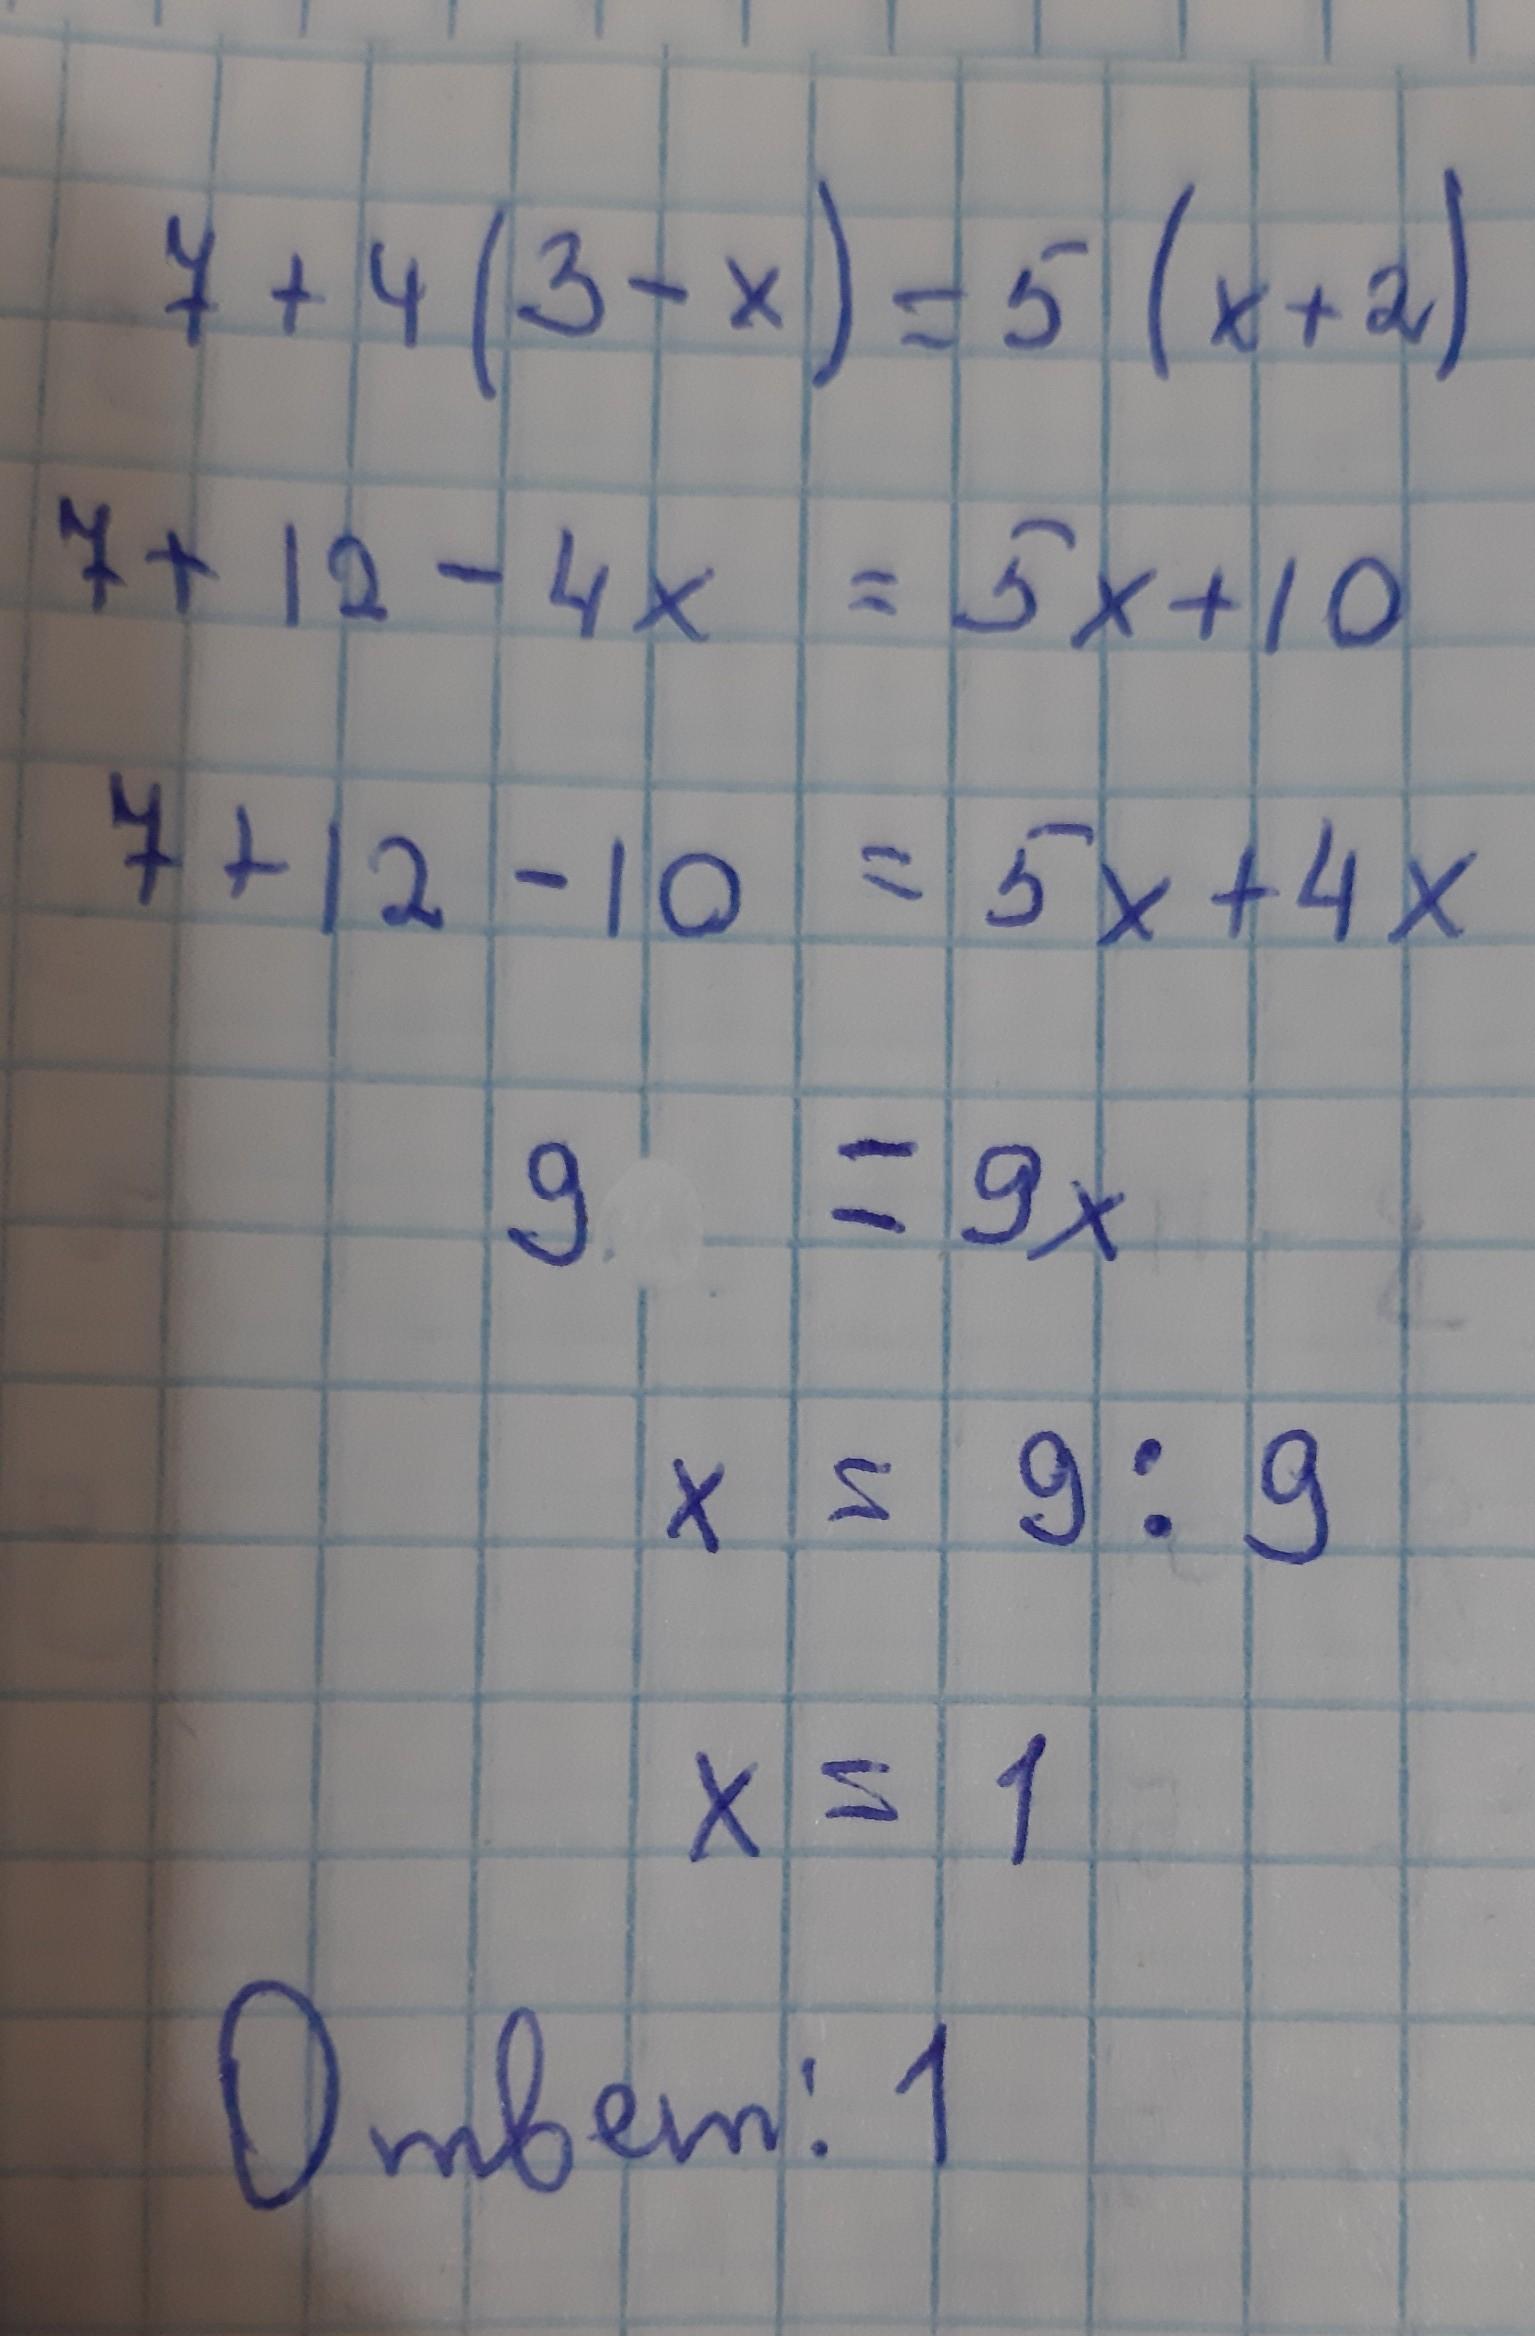 7 + 4 (3 - x) = 5 (x + 2)
7 + 12 - 4x = 5x + 10
7 + 12 - 10 = 5x + 4x
9 = 9x
x = 9 : 9
x = 1
Ответ: 1